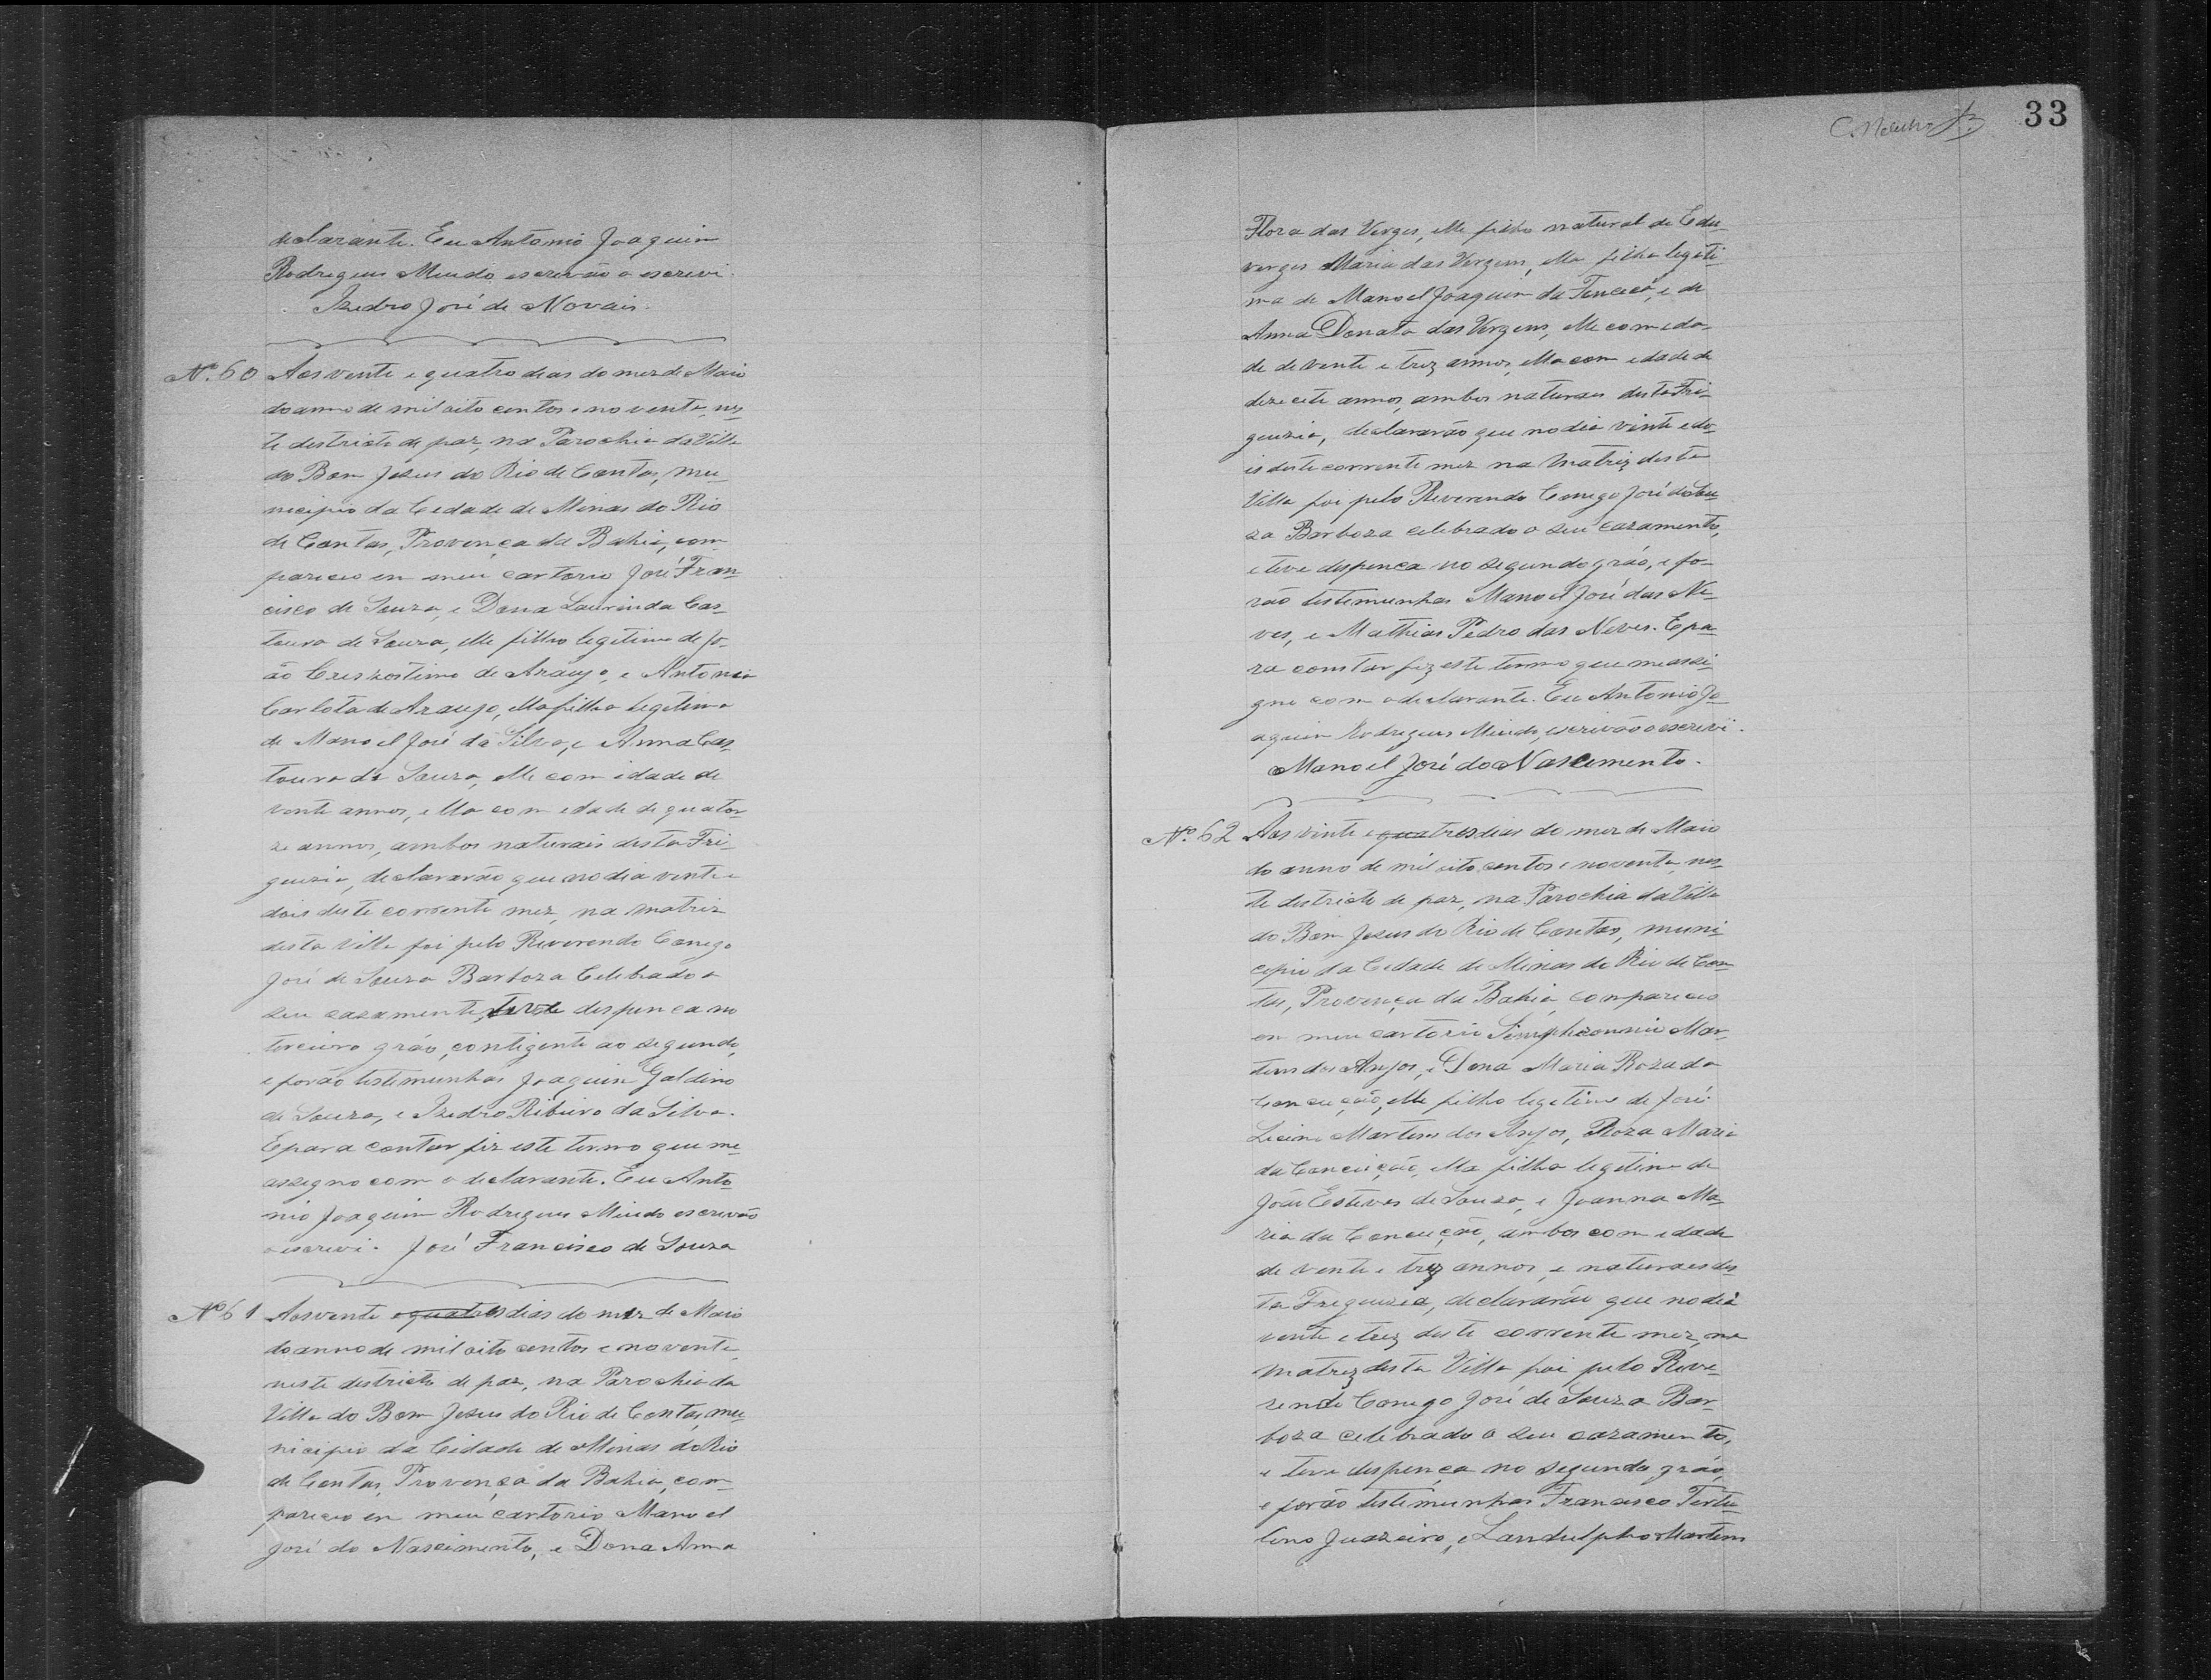 declarante. Eu Antonio Joaquim
Rodrigues Miudo escrivão o escrevi.
Izidro José de Novais.
Nº. 60 Aos vente e quatro dias do mez de Maio
do anno de mil oito centos e noventa, nes-
te destricto de paz, na Parochia da Villa
do Bom Jesus do Rio de Contas, mu-
nicipio da Cedade de Minas do Rio
de Contas, Provença da Bahia, com-
pareceo em meu cartorio José Fran-
cisco de Souza, e Dona Laurinda Cas-
toura de Souza, elle filho legitimo de Jo-
ão Creszostimo de Araujo, e Antonia
Carlota de Araujo, ella filha legitima
de Manoel José da Silva, e Anna Cas-
toura de Souza, elle com idade de
vente annos, ella com edade de quator-
ze annos, ambos naturais desta Fri-
guezia, declararão que no dia vente e
dois deste corrente mez, na matriz
desta Villa foi pelo Reverendo Conego
José de Souza Barboza Celebrado o
seu cazamento, teve despença no
terceiro gráo, contigente ao segundo,
e forão testimunhas Joaquim Galdino
de Souza, e Izidro Ribeiro da Silva.
E para contar fiz este termo que me
assegno com o declarante. Eu Anto-
nio Joaquim Rodrigues Miudo escrivão
o escrevi. José Francisco de Souza
Nº 61 Aos vente e quatro dias do mez de Maio
do anno de mil oito centos e noventa,
neste destricto de paz, na Parochia da
Villa do Bom Jesus do Rio de Contas, mu-
nicipio da Cidade de Minas do Rio
de Contas, Provença da Bahia, com-
pareceo em meu cartorio Manoel
José do Nascimento, e Dona Anna
33
Flora das Verges, elle filho natural de Edu-
verges Maria das Vergens, ella filha legiti-
ma de Manoel Joaquim da , e de
Anna Donata das Vergens, elle com eda-
de de vente e trez annos, ella com edade de
dezecete annos, ambos naturaes desta Fri-
guezia, declararão que no dia vinte e do-
is deste corrente mez na Matriz desta
Villa foi pelo Reverendo Conego José de Sou-
za Barboza celebrado o seu cazamento,
e teve despença no segundo gráo, e fo-
rão testemunhas Manoel José das Ne-
ves, e Mathias Pedro das Neves. E pa-
ra constar fiz este termo que me assi-
gno com o declarante. Eu Antonio Jo-
aquim Rodrigues Miudo, escrivão o escrevi.
Manoel José do Nascimento.
Nº. 62 Aos vinte e quatro dias do mez de Maio
do anno de mil oito centos e noventa, nes-
te destricto de paz, na Parochia da Villa
do Bom Jesus do Rio de Contas, muni-
cipio da Cedade de Minas do Rio de Con-
tas, Provença da Bahia, compareceo
em meu cartorio Mar-
tins dos Anjos, e Dona Maria Roza da
Conceição, elle filho legetimo de José
Licino Martins dos Anjos, Roza Maria
da Conceição, ella filha legetima de
João Esteves de Souza, e Joanna Ma-
ria da Conceição, ambos com edade
de vente e trez annos, e naturaes des-
ta Freguezia, declararão que no dia
vente e trez deste corrente mez, na
matriz desta Villa foi pelo Reve-
rendo Conego José de Souza Bar-
boza celebrado o seu cazamento,
e teve despença no segundo gráo,
e forão testimunhas Francisco Tertu-
lino Juazeiro, e Landulpho Martins